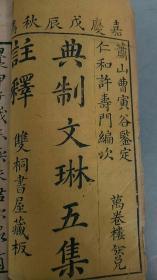 嘉慶戊辰秋
蕭山曹寅谷鑒定
仁和許壽門編次
典制文琳五集
註釋
雙桐書屋藏板
萬卷樓發兌